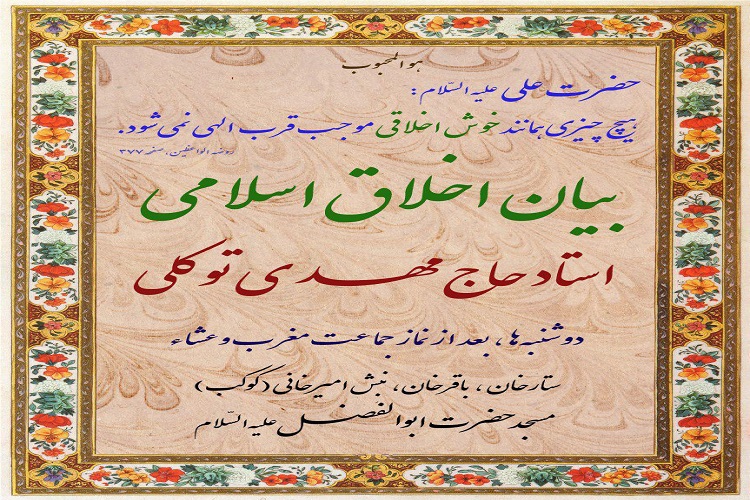 هوالمحبوب
حضرت علی علیه السّلام :
هیچ چیزی همانند خوش اخلاقی موجب قرب الهی نمی شود.
روضه الواعظین، صفحه ۳۷۷
بیان اخلاق اسلامی
استاد حاج مهدی توکلی
دوشنبه ها، بعد از نماز جماعت مغرب و عشاء
ستارخان، باقرخان، نبش امیرخانی (کوکب)
مسجد حضرت ابوالفضل علیه السّلام